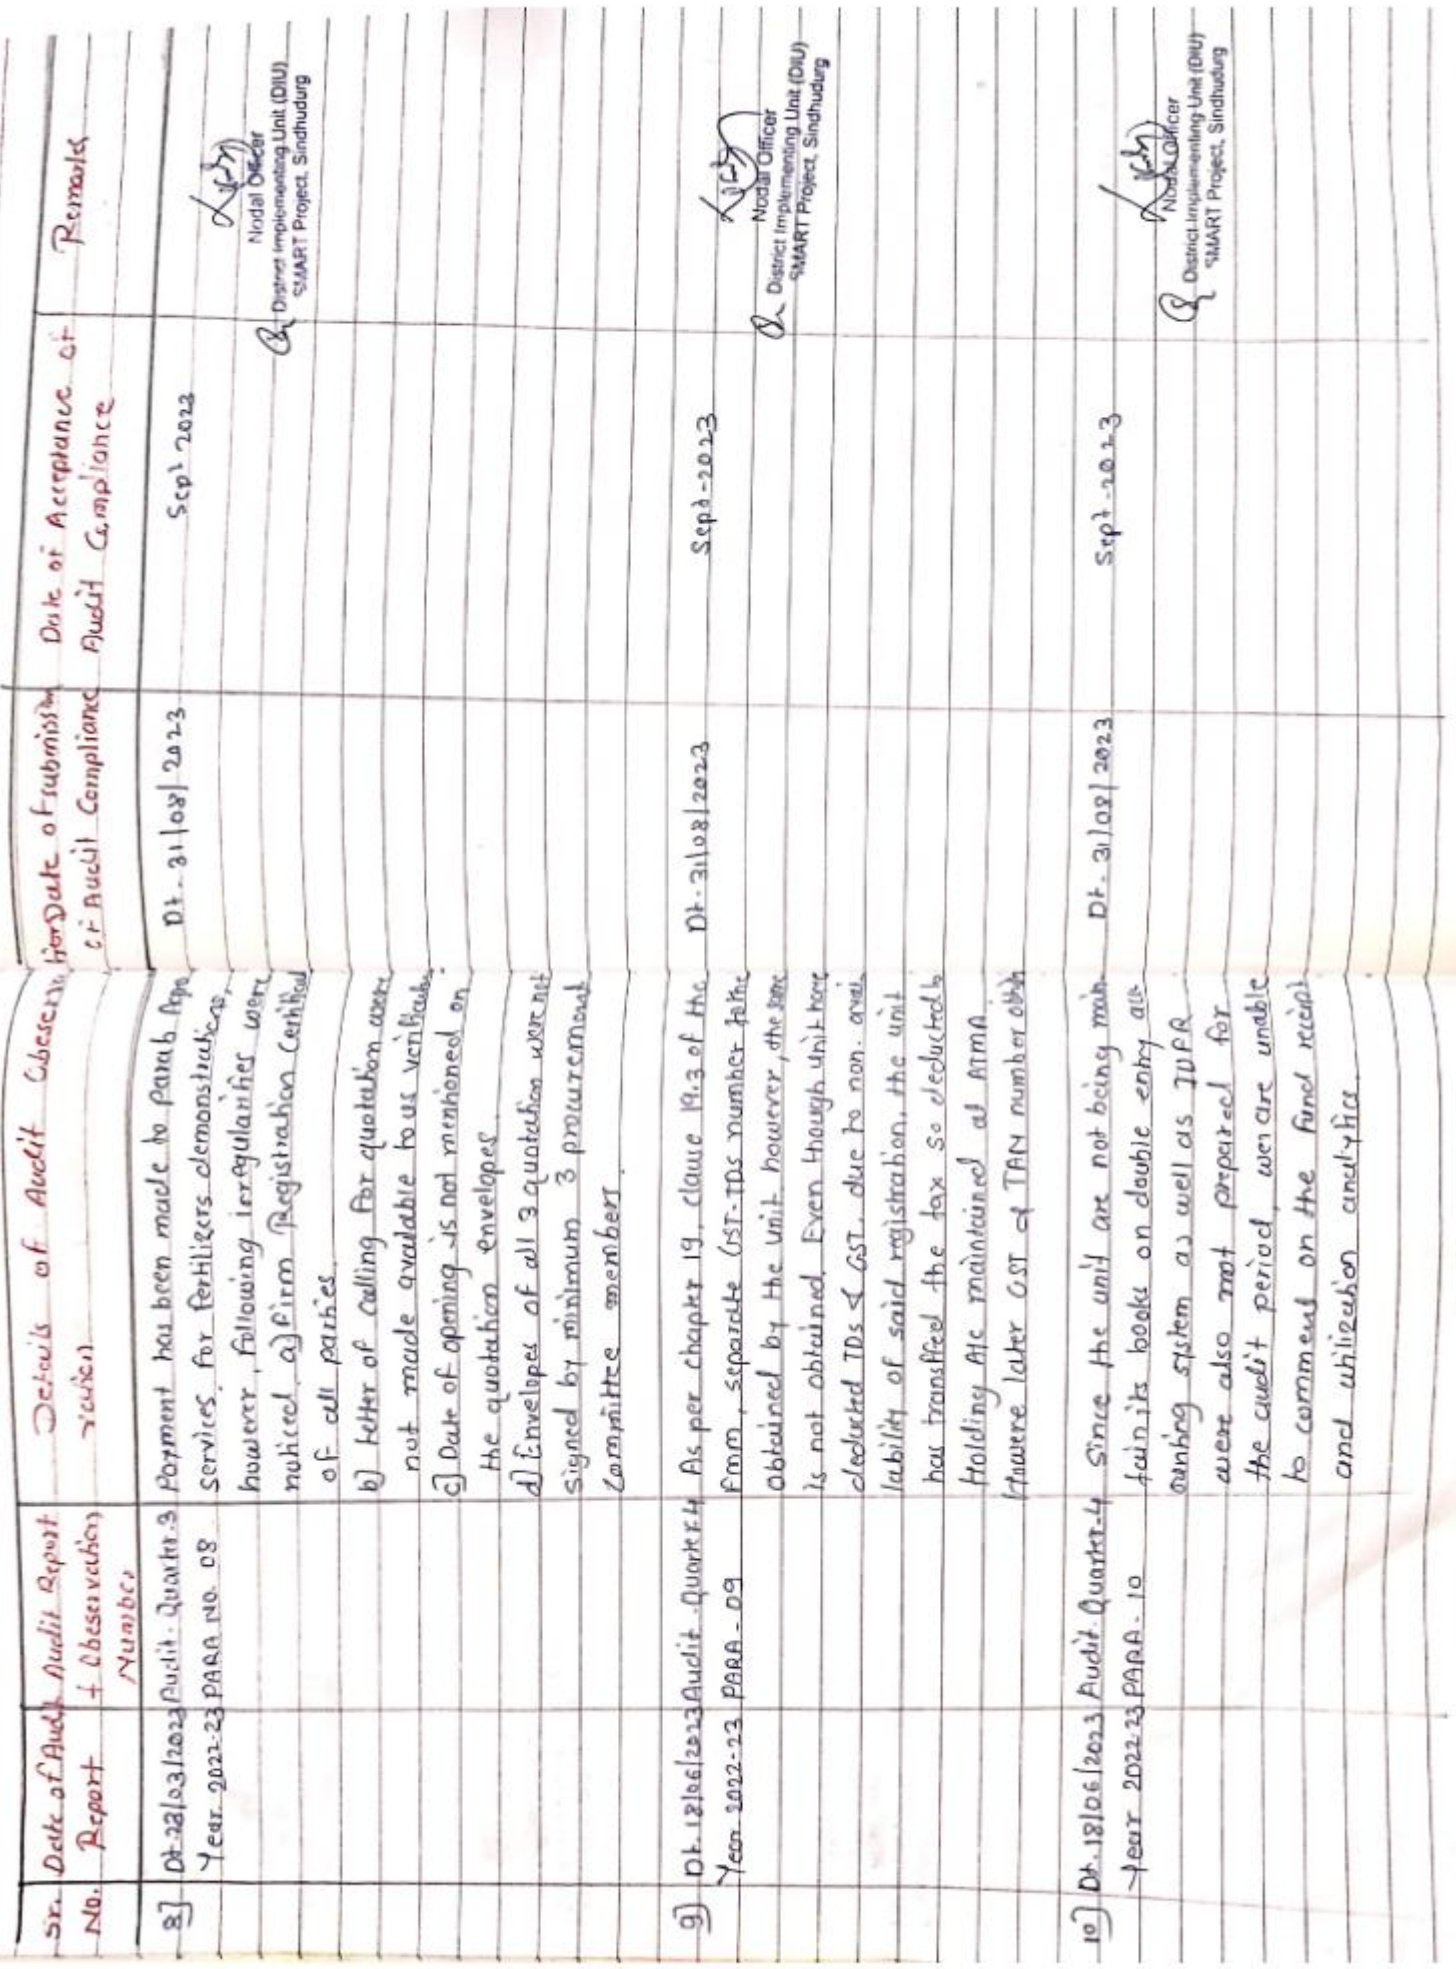 Sr. No.
Date of Audit Report
Audit Report & Obeservation Number
Details of Audit Obeservation raised
Date of submission of Audit Compliance
Date of Acceptance of Audit Compliance
Remarks
8] Dt-28/03/2023 Audit-Quarter-3
Year 2022-23 PARA NO. 08
Payment has been made to Parab Agro
services, for fertilizers demonstrations,
however, following irregularities were
noticed, a) firm Registration Certificat
of all parties
b) letter of calling for quotation were
not made available to us verification
c] Date of opening is not mentioned on
the quotation envelopes
d] Envelopes of all 3 quotation were not
signed by minimum 3 procurement
committee members
Dt. 31/08/2023
Sept 2023
Nodal Officer
District Implementing Unit (DIU)
SMART Project, Sindhudurg
9] Dt. 18/06/2023 Audit-Quarter-4
Year 2022-23 PARA-09
As per chapter 19, clause 19.3 of the
FMM, separate GST-TDS number to be
obtained by the unit however, the same
is not obtained. Even though unit have
deducted TDS & GST, due to non. avai
lability of said registration, the unit
has transffed the tax so deducted to
Holding A/c maintained at ATMA
Howere later GST & TAN number obtain
Dt-31/08/2023
Sept-2023
Nodal Officer
District Implementing Unit (DIU)
SMART Project, Sindhudurg
10] Dt. 18/06/2023 Audit-Quarter-4
Year 2022-23 PARA-10
Since the unit are not being main-
tain its books on double entry acc
ounting system as well as IUFR
were also not prepared for
the audit period, we are unable
to comment on the fund receipt
and utilization analytics
Dt-31/08/2023
Sept-2023
Nodal Officer
District Implementing Unit (DIU)
SMART Project, Sindhudurg